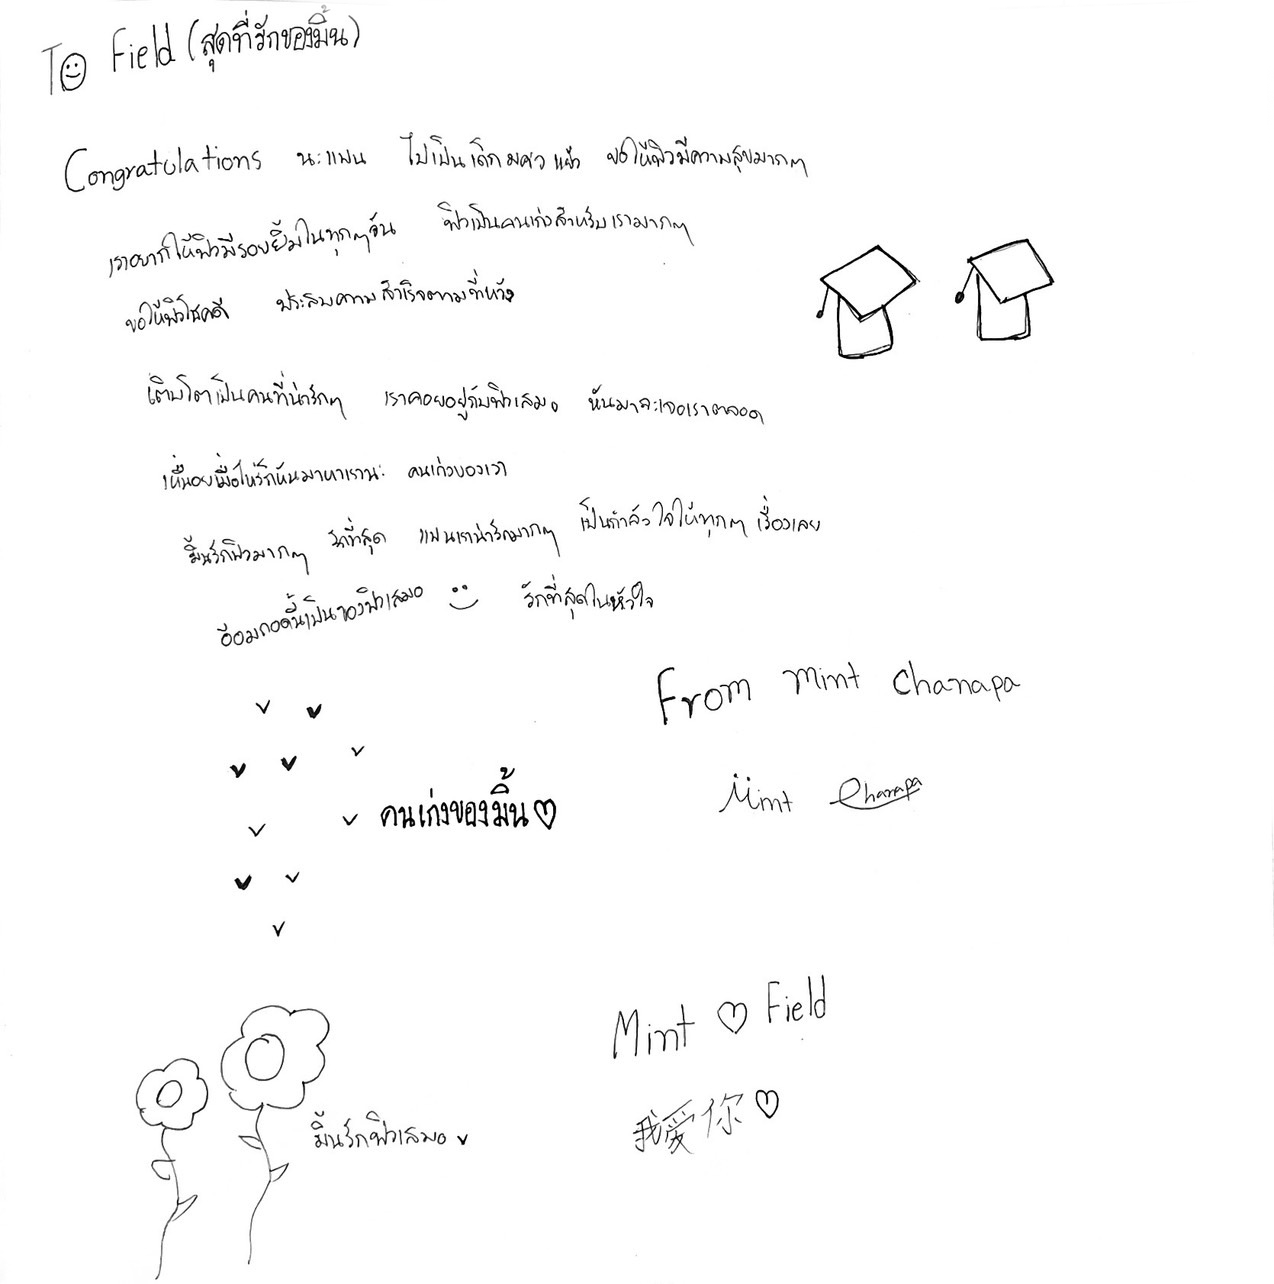 To Field (สุดที่รักของมิ้น)
Congratulations นะแฟน ไปเป็นเด็ก มศว แล้ว ขอให้ฟิวมีความสุขมากๆ
เราอยากให้ฟิวมีรอยยิ้มในทุกๆวัน ฟิวเป็นคนเก่งสำหรับเรามากๆ
ขอให้ฟิวโชคดี ประสบความสำเร็จตามที่หวัง
เติบโตเป็นคนที่น่ารักๆ เราคอยอยู่กับฟิวเสมอ หันมาจะเจอเราตลอด
เหนื่อยเมื่อไหร่ก็หันมาหาเรานะ คนเก่งของเรา
มิ้นรักฟิวมากๆ รักที่สุด แฟนเราน่ารักมากๆ เป็นกำลังใจให้ทุกๆ เรื่องเลย
อ้อมกอดนี้เป็นของฟิวเสมอ รักที่สุดในหัวใจ
From mint Chanapa
Mint Chanapa
คนเก่งของมิ้น♡
Mint ♡ Field
我爱你♡
มิ้นรักฟิวเสมอ